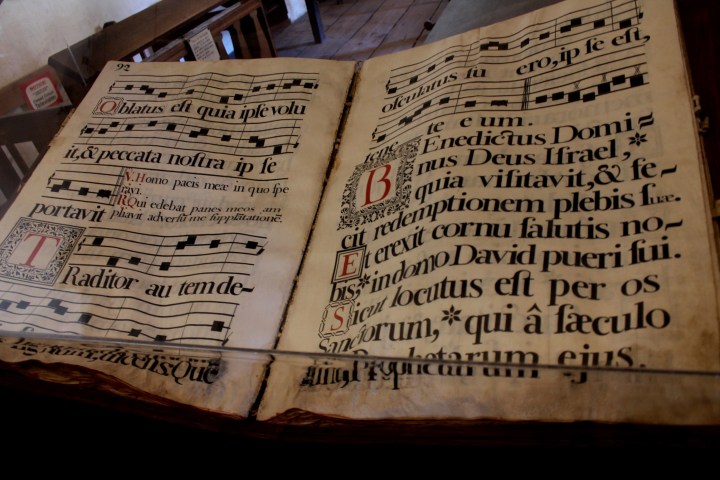 92
Oblatus eſt quia ipſe volu
it, & peccata noſtra ip ſe
V. Homo pacis meæ in quo ſpe
ravi.
R. Qui edebat panes meos am
portavit
pliavit adverſu me ſupplātationē.
Traditor au tem de-
eis ſignum, dicens: Que
oſculatus fu ero, ip ſe eſt,
tene te e um.
BEnedictus Domi-
nus Deus Iſrael, *
quia viſitavit, & fe-
cit redemptionem plebis ſuæ.
Et erexit cornu ſalutis no-
bis * in domo David pueri ſui.
Sicut locutus eſt per os
Sanctorum, * qui â ſæculo
ſunt, Prophetarum ejus.